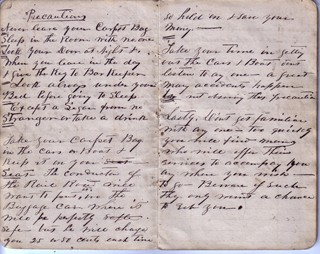 Precautions
Never leave your Carpet Bag
Sleep in the Room with no one
Lock your Door at Night &
when you leave in the day
& give the Key to Bar Keeper
Look always under your
Bed before going to Sleep
Except a Segar from no
Stranger or take a drink
Take your Carpet Bag
in the cars or Boat &
Keep it on your
Seat. The conductor of
the will
want to put it in the
Baggage Car, where it
will be perfectly safe
safe but he will charge
you 25 or 50 cents each time
so hold on & save your
Money
Take your time in getting
out the Cars & Boat, don't
listen to any one a great
many accidents happen
by not observing this precaution
Lastly. Don't get familiar
with any one too quick
you will find many
who will offer their
services to accompany you
any where you wish
to go Beware of such
they only want a chance
to rob you.